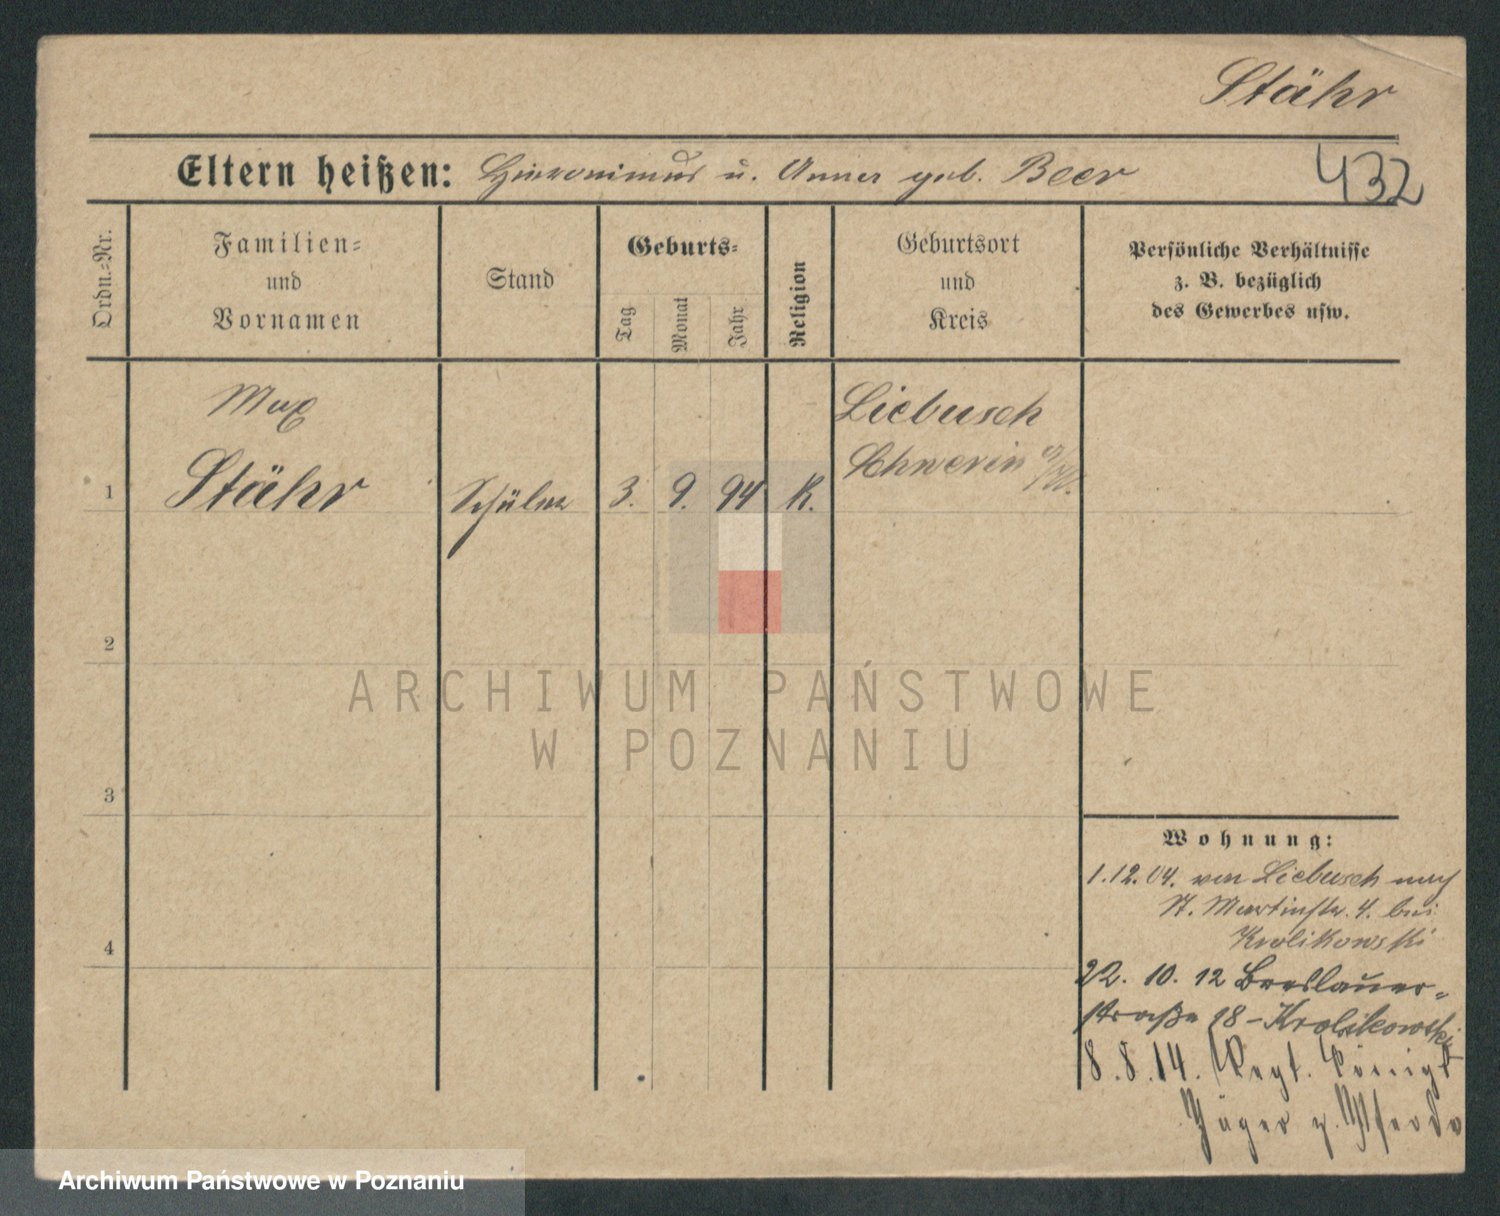 Stähr
Eltern heißen: Hieronimus u. Anna geb. Beer
432
Ordn.-Nr.
Familien-
und
Vornamen
Stand
Geburts-
Tag
Monat
Jahr
Religion
Geburtsort
und
Kreis
Persönliche Verhältnisse
z. B. bezüglich
des Gewerbes usw.
Max
Stähr
1
Schüler
3. 9. 94
K.
Liebusch
Schwerin a/W.
2
3
4
Wohnung:
1.12.04. von Liebusch nach
St. Martinstr. 4. bei
Krolikowski
22. 10. 12 Breslauer-
straße 18 - Krolikowski
8.8.14. Regt. Königs
Jäger z. Pferde
ARCHIWUM PAŃSTWOWE
W POZNANIU
Archiwum Państwowe w Poznaniu